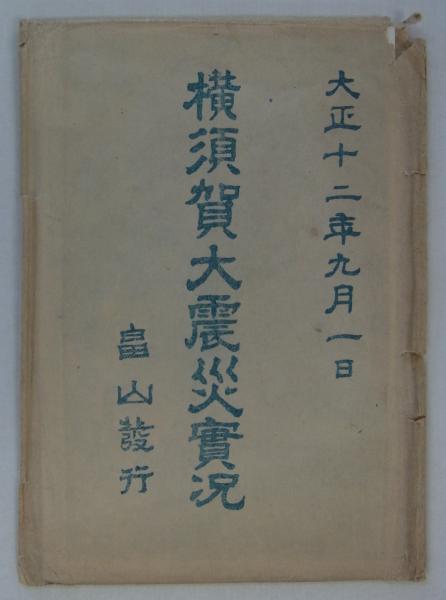 大正十二年九月一日
橫須賀大震災實況
畠山發行